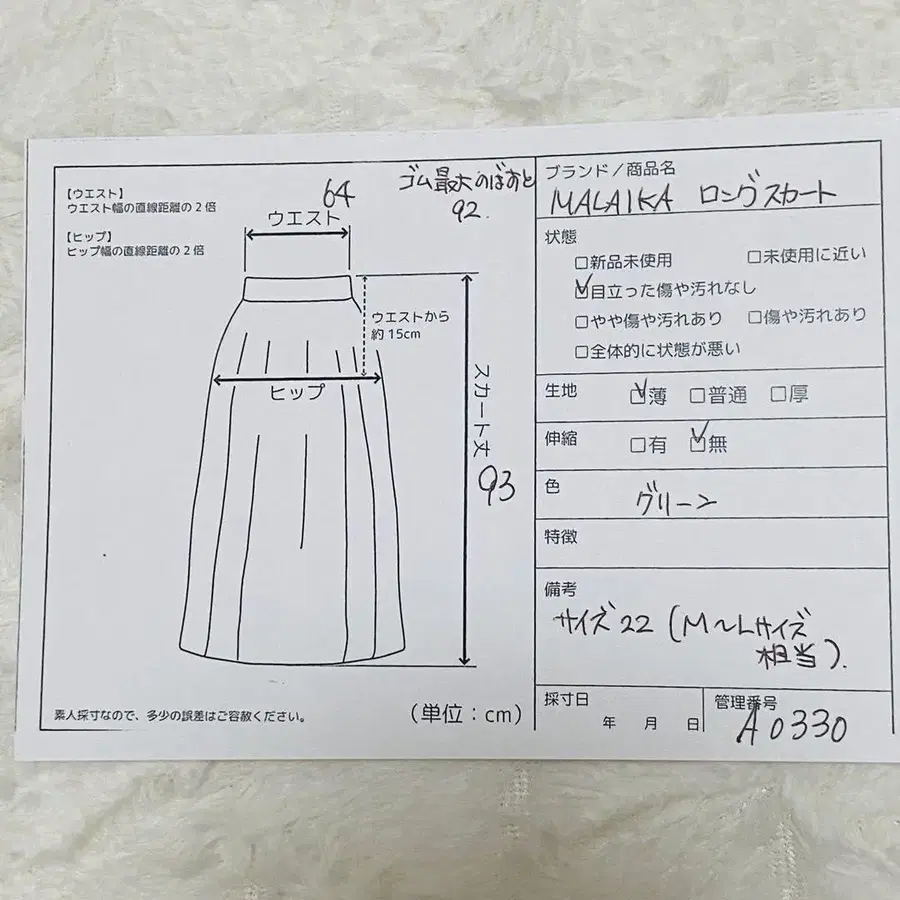 【ウエスト】
ウエスト幅の直線距離の2倍
【ヒップ】
ヒップ幅の直線距離の2倍
64
ウエスト
ゴム最大のばすと
92.
ウエストから
約15cm
ヒップ
スカート丈
93
素人採寸なので、多少の誤差はご容赦ください。
(単位:cm)
ブランド/商品名
MALAIKA ロングスカート
状態
□新品未使用 □未使用に近い
☑目立った傷や汚れなし
□やや傷や汚れあり □傷や汚れあり
□全体的に状態が悪い
生地 ☑薄 □普通 □厚
伸縮 □有 ☑無
色
グリーン
特徴
備考
サイズ22(M〜Lサイズ
相当).
採寸日
年 月 日
管理番号
A0330